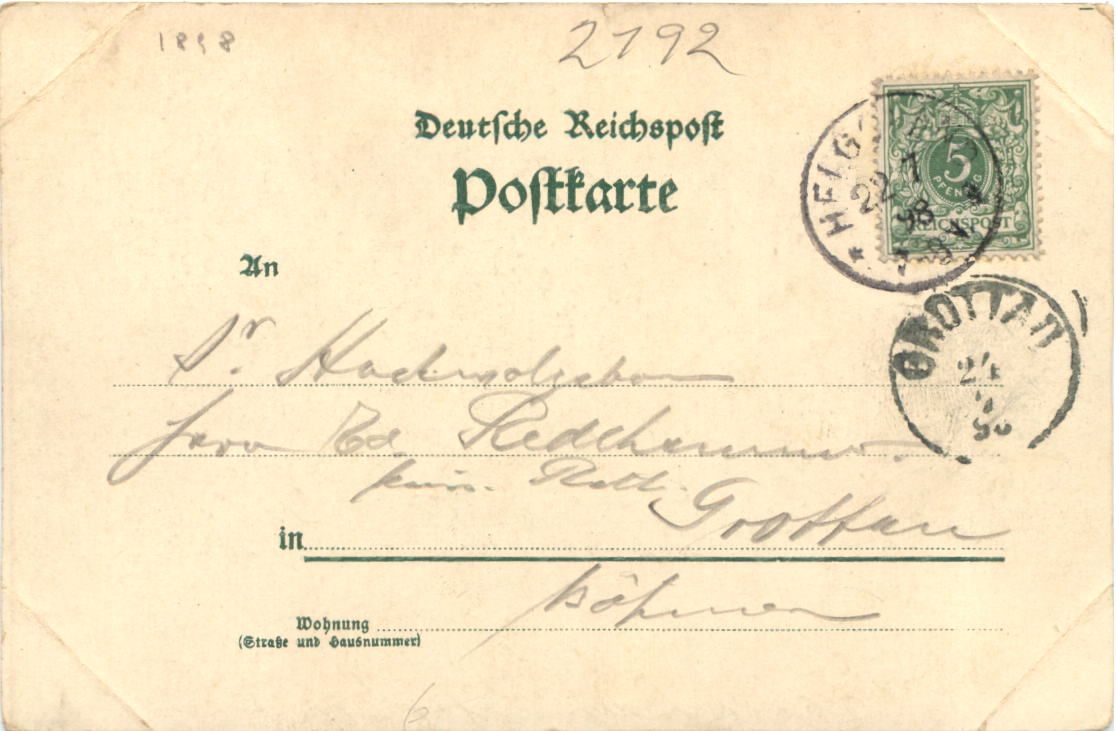 1898
2192
Deutsche Reichspost
Postkarte
5
PFENNIG
REICHSPOST
* HELGOLAND *
22 7
98
7-8N
An
GROTTAU
24
98
Sr. Hochwolgeboren
Herrn Ed.
Grottau
in
Böhmen
Wohnung
(Straße und Hausnummer)
6